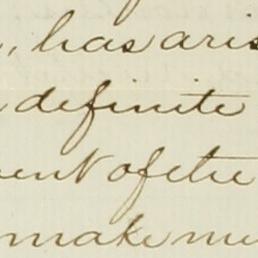 , has aris
definite
ent of the
make me